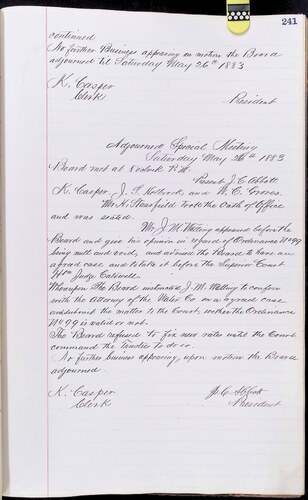 241
continued
No further Business appearing on motion the Board
adjourned til Saturday May 26th 1883
K. Casper
Clerk
President
Adjourned Special Meeting
Saturday May 26th 1883
Board met at 8 oclock P.M.
Present J. C. Abbott
K. Casper, J. F. Holbrook and W. C. Groves.
Mr. H. Mansfield Took the Oath of Office
and was seated.
Mr. J. M. Watling appeared before the
Board and give his opinion in regard of Ordinance No 99
being null and void, and advised the Board to have an
agreed case and to take it before the Superior Court
Hon. Judge Caldwell
Whereupon The Board instructed J. M. Watling to confer
with the Attorney of the Water Co on an agreed case
and submit the matter to the Court, wether the Ordinance
No 99 is valid or not.
The Board refused to fix new rates until the Court
command the Trustees to do so.
No further business appearing, upon motion the Board
adjourned.
K. Casper
Clerk
J. C. Abbott
President